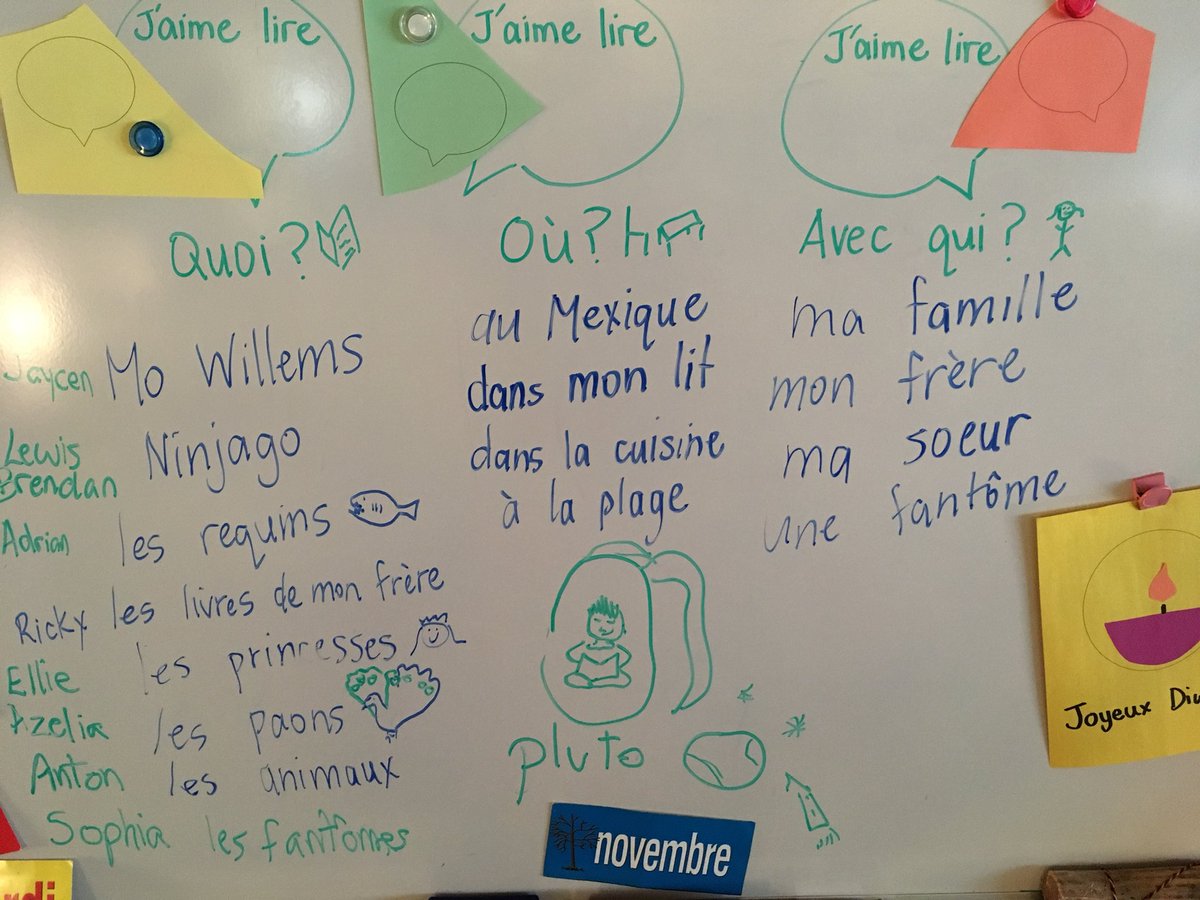 J'aime lire
J'aime lire
J'aime lire
Quoi?
Jaycen Mo Willems
Lewis
Brendan
Ninjago
Adrian les requins
Ricky les livres de mon frère
Ellie les princesses
Azelia les paons
Anton les animaux
Sophia les fantômes
Où?
au Mexique
dans mon lit
dans la cuisine
à la plage
pluto
novembre
Avec qui?
ma famille
mon frère
ma soeur
une fantôme
Joyeux